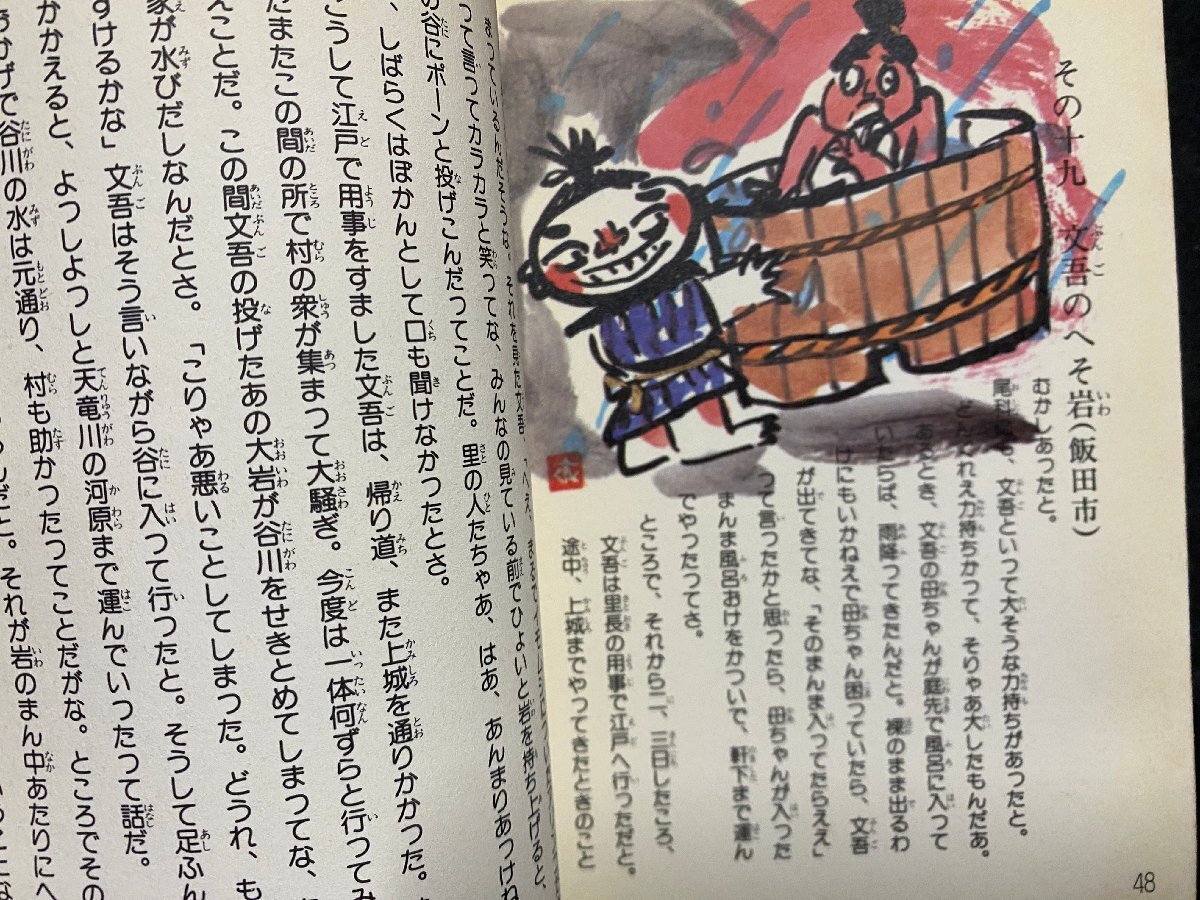 その十九 文吾のへそ岩（飯田市）
むかしあったと。
尾科にも、文吾といって大そうな力持ちがあったと。
えれえ力持ちかって、そりゃあ大したもんだあ。
あるとき、文吾の母ちゃんが庭先で風呂に入って
いたらば、雨降ってきたんだと。裸のまま出るわ
けにもいかねえで母ちゃん困っていたら、文吾
が出てきてな、「そのまんま入ってたらええ」
って言ったかと思ったら、母ちゃんが入った
まんま風呂おけをかついで、軒下まで運ん
でやったってさ。
ところで、それから二、三日したころ、
文吾は里長の用事で江戸へ行っただと。
途中、上城までやってきたときのこと
48
まっているんだそうな。それを見た文吾、
って言ってカラカラと笑ってな、みんなの見ている前でひょいと岩を持ち上げると、
の谷にポーンと投げこんだってことだ。里の人たちゃあ、はあ、あんまりあっけね
、しばらくはぽかんとして口も聞けなかったとさ。
こうして江戸で用事をすました文吾は、帰り道、また上城を通りかかった。
たまたこの間の所で村の衆が集まって大騒ぎ。今度は一体何ずらと行ってみ
えことだ。この間文吾の投げたあの大岩が谷川をせきとめてしまってな、
家が水びだしなんだとさ。「こりゃあ悪いことしてしまった。どうれ、も
すけるかな」文吾はそう言いながら谷に入って行ったと。そうして足ふん
かかえると、ようしよっしと天竜川の河原まで運んでいったって話だ。
おかげで谷川の水は元通り、村も助かったってことだがな。ところでその
んだと。それが岩のまん中あたりにへ